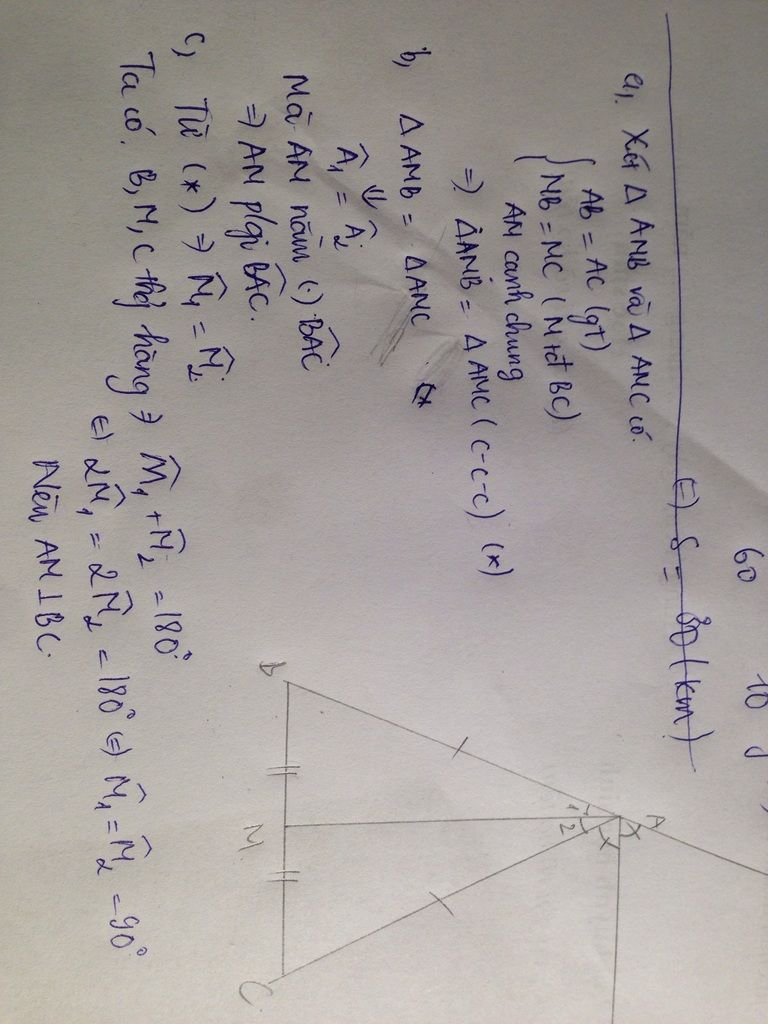 60
10
⇔ S = 30 (km)
a, Xét Δ AMB và Δ AMC có
AB = AC (gt)
MB = MC (M tđ BC)
AM cạnh chung
⇒ ΔAMB = Δ AMC (c-c-c) (*)
b, Δ AMB = Δ AMC (*
⇓
Â1 = Â2
Mà AM nằm (.) BAC
⇒ AM p/gi BAC.
c, Từ (*) ⇒ M̂1 = M̂2
Ta có. B, M, C thẳg hàng ⇒ M̂1 + M̂2 = 180°
⇔ 2M̂1 = 2M̂2 = 180° ⇔ M̂1 = M̂2 = 90°
Nên AM ⊥ BC.
A
1 2
B M C